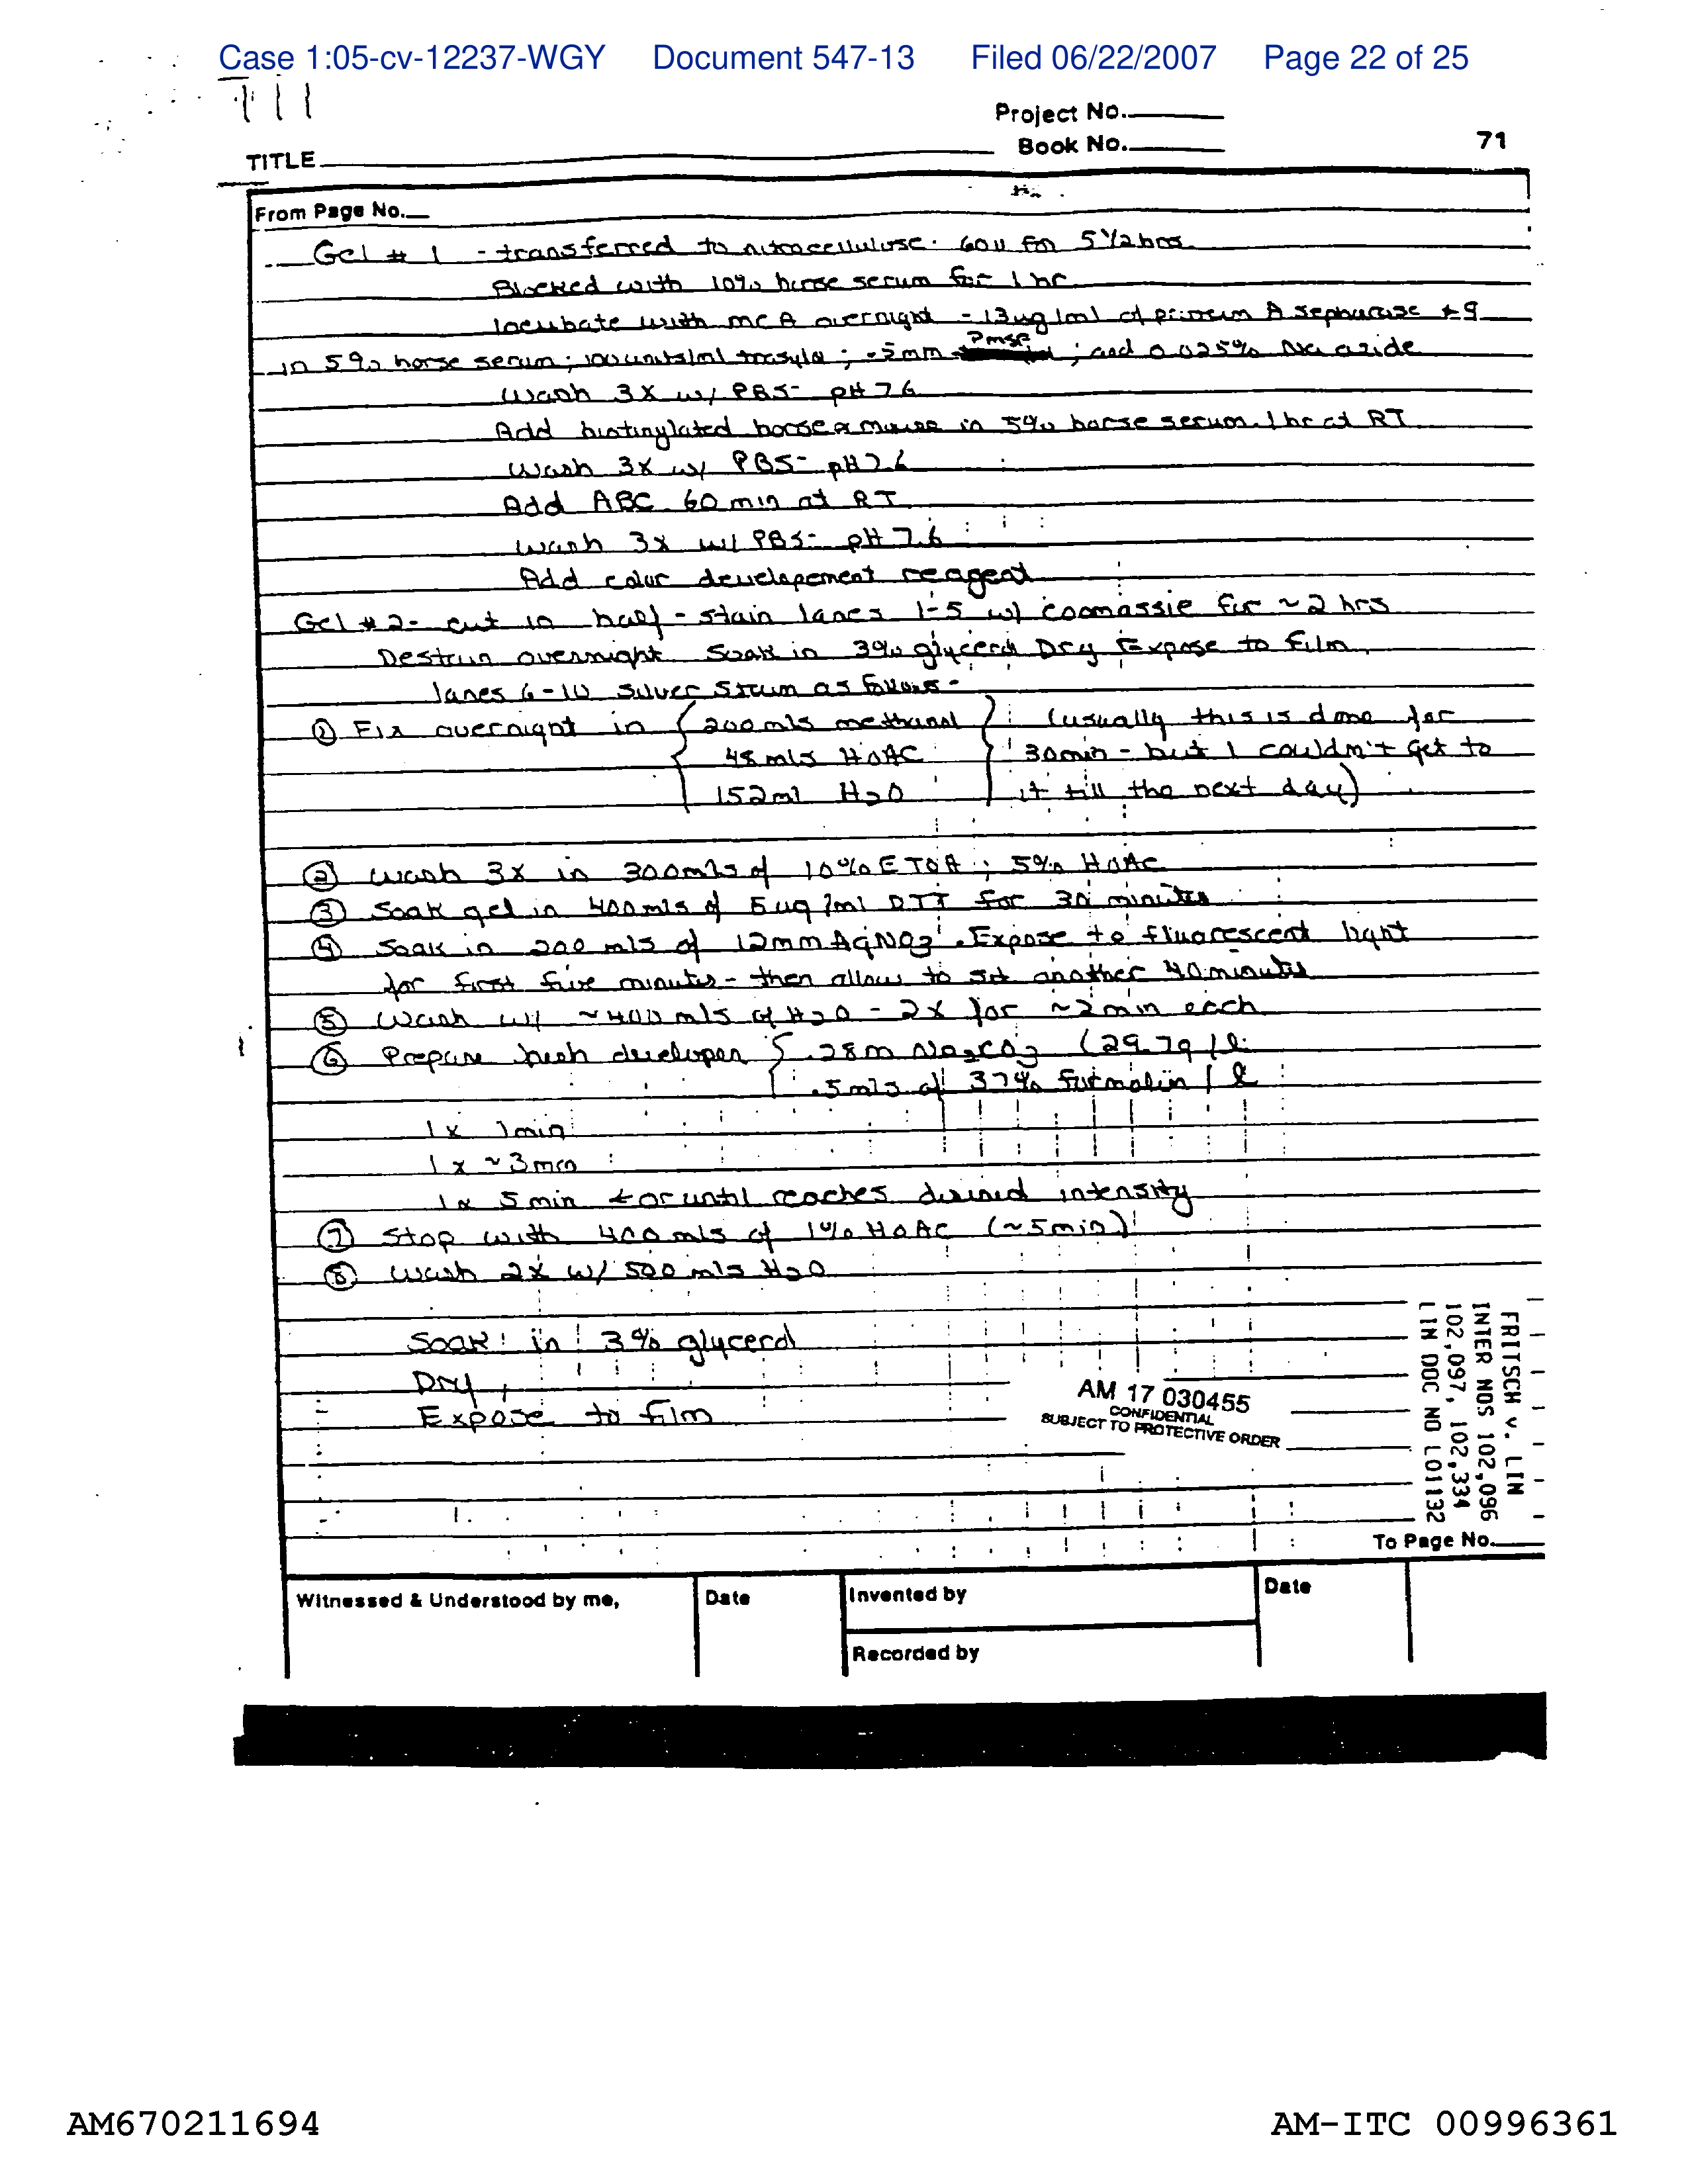 Case 1:05-cv-12237-WGY Document 547-13 Filed 06/22/2007 Page 22 of 25
Project No.
Book No.
71
TITLE
From Page No.
Gel # 1 - transferred to nitrocellulose. 60v for 5 1/2 hrs
Blocked with 10% horse serum for 1 hr
Incubate with mCA overnight - 13ug/ml of protein A sepharose #9
PMSF
in 5% horse serum; 100 units/ml trasylol; .5mm ; and 0.025% Na azide
Wash 3X w/ PBS- pH 7.6
Add biotinylated horse α mouse in 5% horse serum. 1 hr at RT
Wash 3X w/ PBS- pH 7.6
Add ABC 60 min at RT
Wash 3x w/ PBS- pH 7.6
Add color developement reagent
Gel #2- cut in half - stain lanes 1-5 w/ coomassie for ~2 hrs
Destain overnight. Soak in 3% glycerol Dry Expose to film
lanes 6-10 silver stain as follows-
① Fix overnight in { 200mls methanol } (usually this is done for
48 mls HOAC 30min - but I couldn't get to
152ml H2O it till the next day)
② Wash 3X in 300mls of 10% ETOH; 5% HOAC
③ Soak gel in 400mls of 5ug/ml DTT for 30 minutes
④ Soak in 200 mls of 12mm AgNO3. Expose to fluorescent light
for first five minutes - then allow to sit another 40 minutes
⑤ Wash w/ ~400 mls of H2O - 2X for ~2min each
⑥ Prepare fresh developer { .28m Na2CO3 (29.7g/l
.5mls of 37% formalin / l
1x 1min
1x ~3min
1x 5 min ± or until reaches desired intensity
⑦ Stop with 400 mls of 1% HOAC (~5min)
⑧ Wash 2X w/ 500 mls H2O
Soak in 3% glycerol
Dry
Expose to film
AM 17 030455
CONFIDENTIAL
SUBJECT TO PROTECTIVE ORDER
FRITSCH v. LIN
INTER NOS 102,096
102,097, 102,334
LIN DOC NO L01132
To Page No.
Witnessed & Understood by me,
Date
Invented by
Date
Recorded by
AM670211694
AM-ITC 00996361